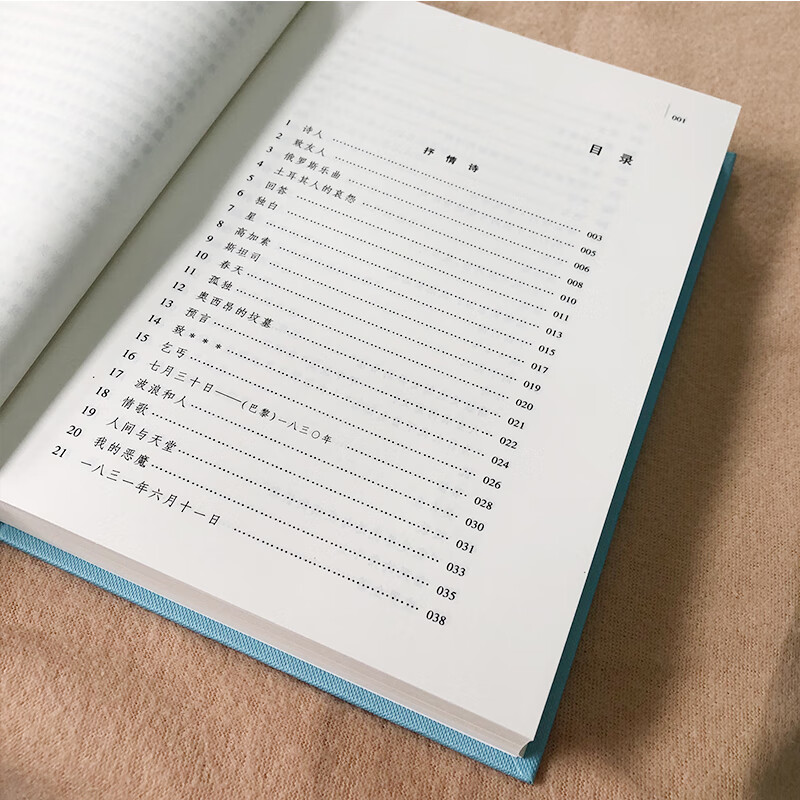 001
目 录
抒 情 诗
1 诗人 003
2 致友人 005
3 俄罗斯乐曲 006
4 土耳其人的哀怨 008
5 回答 010
6 独白 011
7 星 013
8 高加索 015
9 斯坦司 017
10 春天 019
11 孤独 020
12 奥西昂的坟墓 021
13 预言 022
14 致*** 024
15 乞丐 026
16 七月三十日——(巴黎)一八三〇年 028
17 波浪和人 030
18 情歌 031
19 人间与天堂 033
20 我的恶魔 035
21 一八三一年六月十一日 038